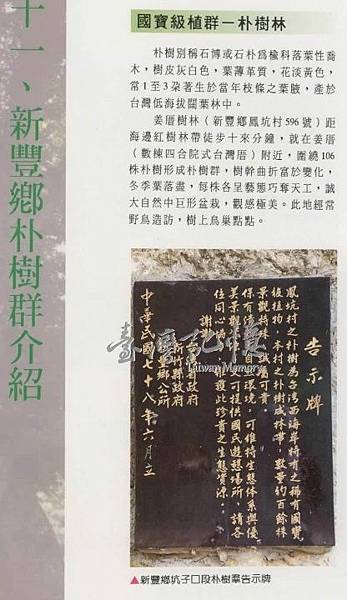 十一、新豐鄉朴樹群介紹
國寶級植群－朴樹林
朴樹別稱石博或石朴為榆科落葉性喬
木,樹皮灰白色,葉薄革質,花淡黃色,
常1至3朵著生於當年枝條之葉腋,產於
台灣低海拔闊葉林中。
姜厝樹林(新豐鄉鳳坑村596號)距
海邊紅樹林帶徒步十來分鐘,就在姜厝
(數棟四合院式台灣厝)附近,圍繞106
株朴樹形成朴樹群,樹幹曲折富於變化,
冬季葉落盡,每株各呈藝態巧奪天工,誠
大自然中巨形盆栽,觀感極美。此地經常
野鳥造訪,樹上鳥巢點點。
告示牌
鳳坑村之朴樹為台灣西海岸特有之稀有國寶
級植物,本村之朴樹成林帶,數量約百餘株
景觀特殊,誠為可貴。
保有清 自 環境,可維持生態体系與優
美景觀 可提供國民遊憩場所,請各
位同心 護此珍貴之生態資源。
謝
省政府
新竹縣政府
豐鄉公所
中華民國七十八年六月立
臺灣記憶
Taiwan Memory
▲新豐鄉坑子口段朴樹羣告示牌